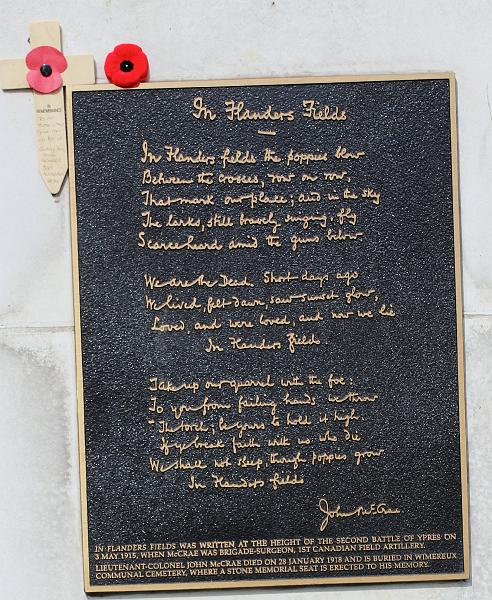 In Flanders Fields
In Flanders fields the poppies blow
Between the crosses, row on row,
That mark our place; and in the sky
The larks, still bravely singing, fly
Scarce heard amid the guns below.
We are the Dead. Short days ago
We lived, felt dawn, saw sunset glow,
Loved, and were loved, and now we lie
In Flanders fields.
Take up our quarrel with the foe:
To you from failing hands we throw
The torch; be yours to hold it high.
If ye break faith with us who die
We shall not sleep, though poppies grow
In Flanders fields
John McCrae
IN FLANDERS FIELDS WAS WRITTEN AT THE HEIGHT OF THE SECOND BATTLE OF YPRES ON
3 MAY 1915, WHEN McCRAE WAS BRIGADE-SURGEON, 1ST CANADIAN FIELD ARTILLERY.
LIEUTENANT-COLONEL JOHN McCRAE DIED ON 28 JANUARY 1918 AND IS BURIED IN WIMEREUX
COMMUNAL CEMETERY, WHERE A STONE MEMORIAL SEAT IS ERECTED TO HIS MEMORY.
IN
REMEMBRANCE